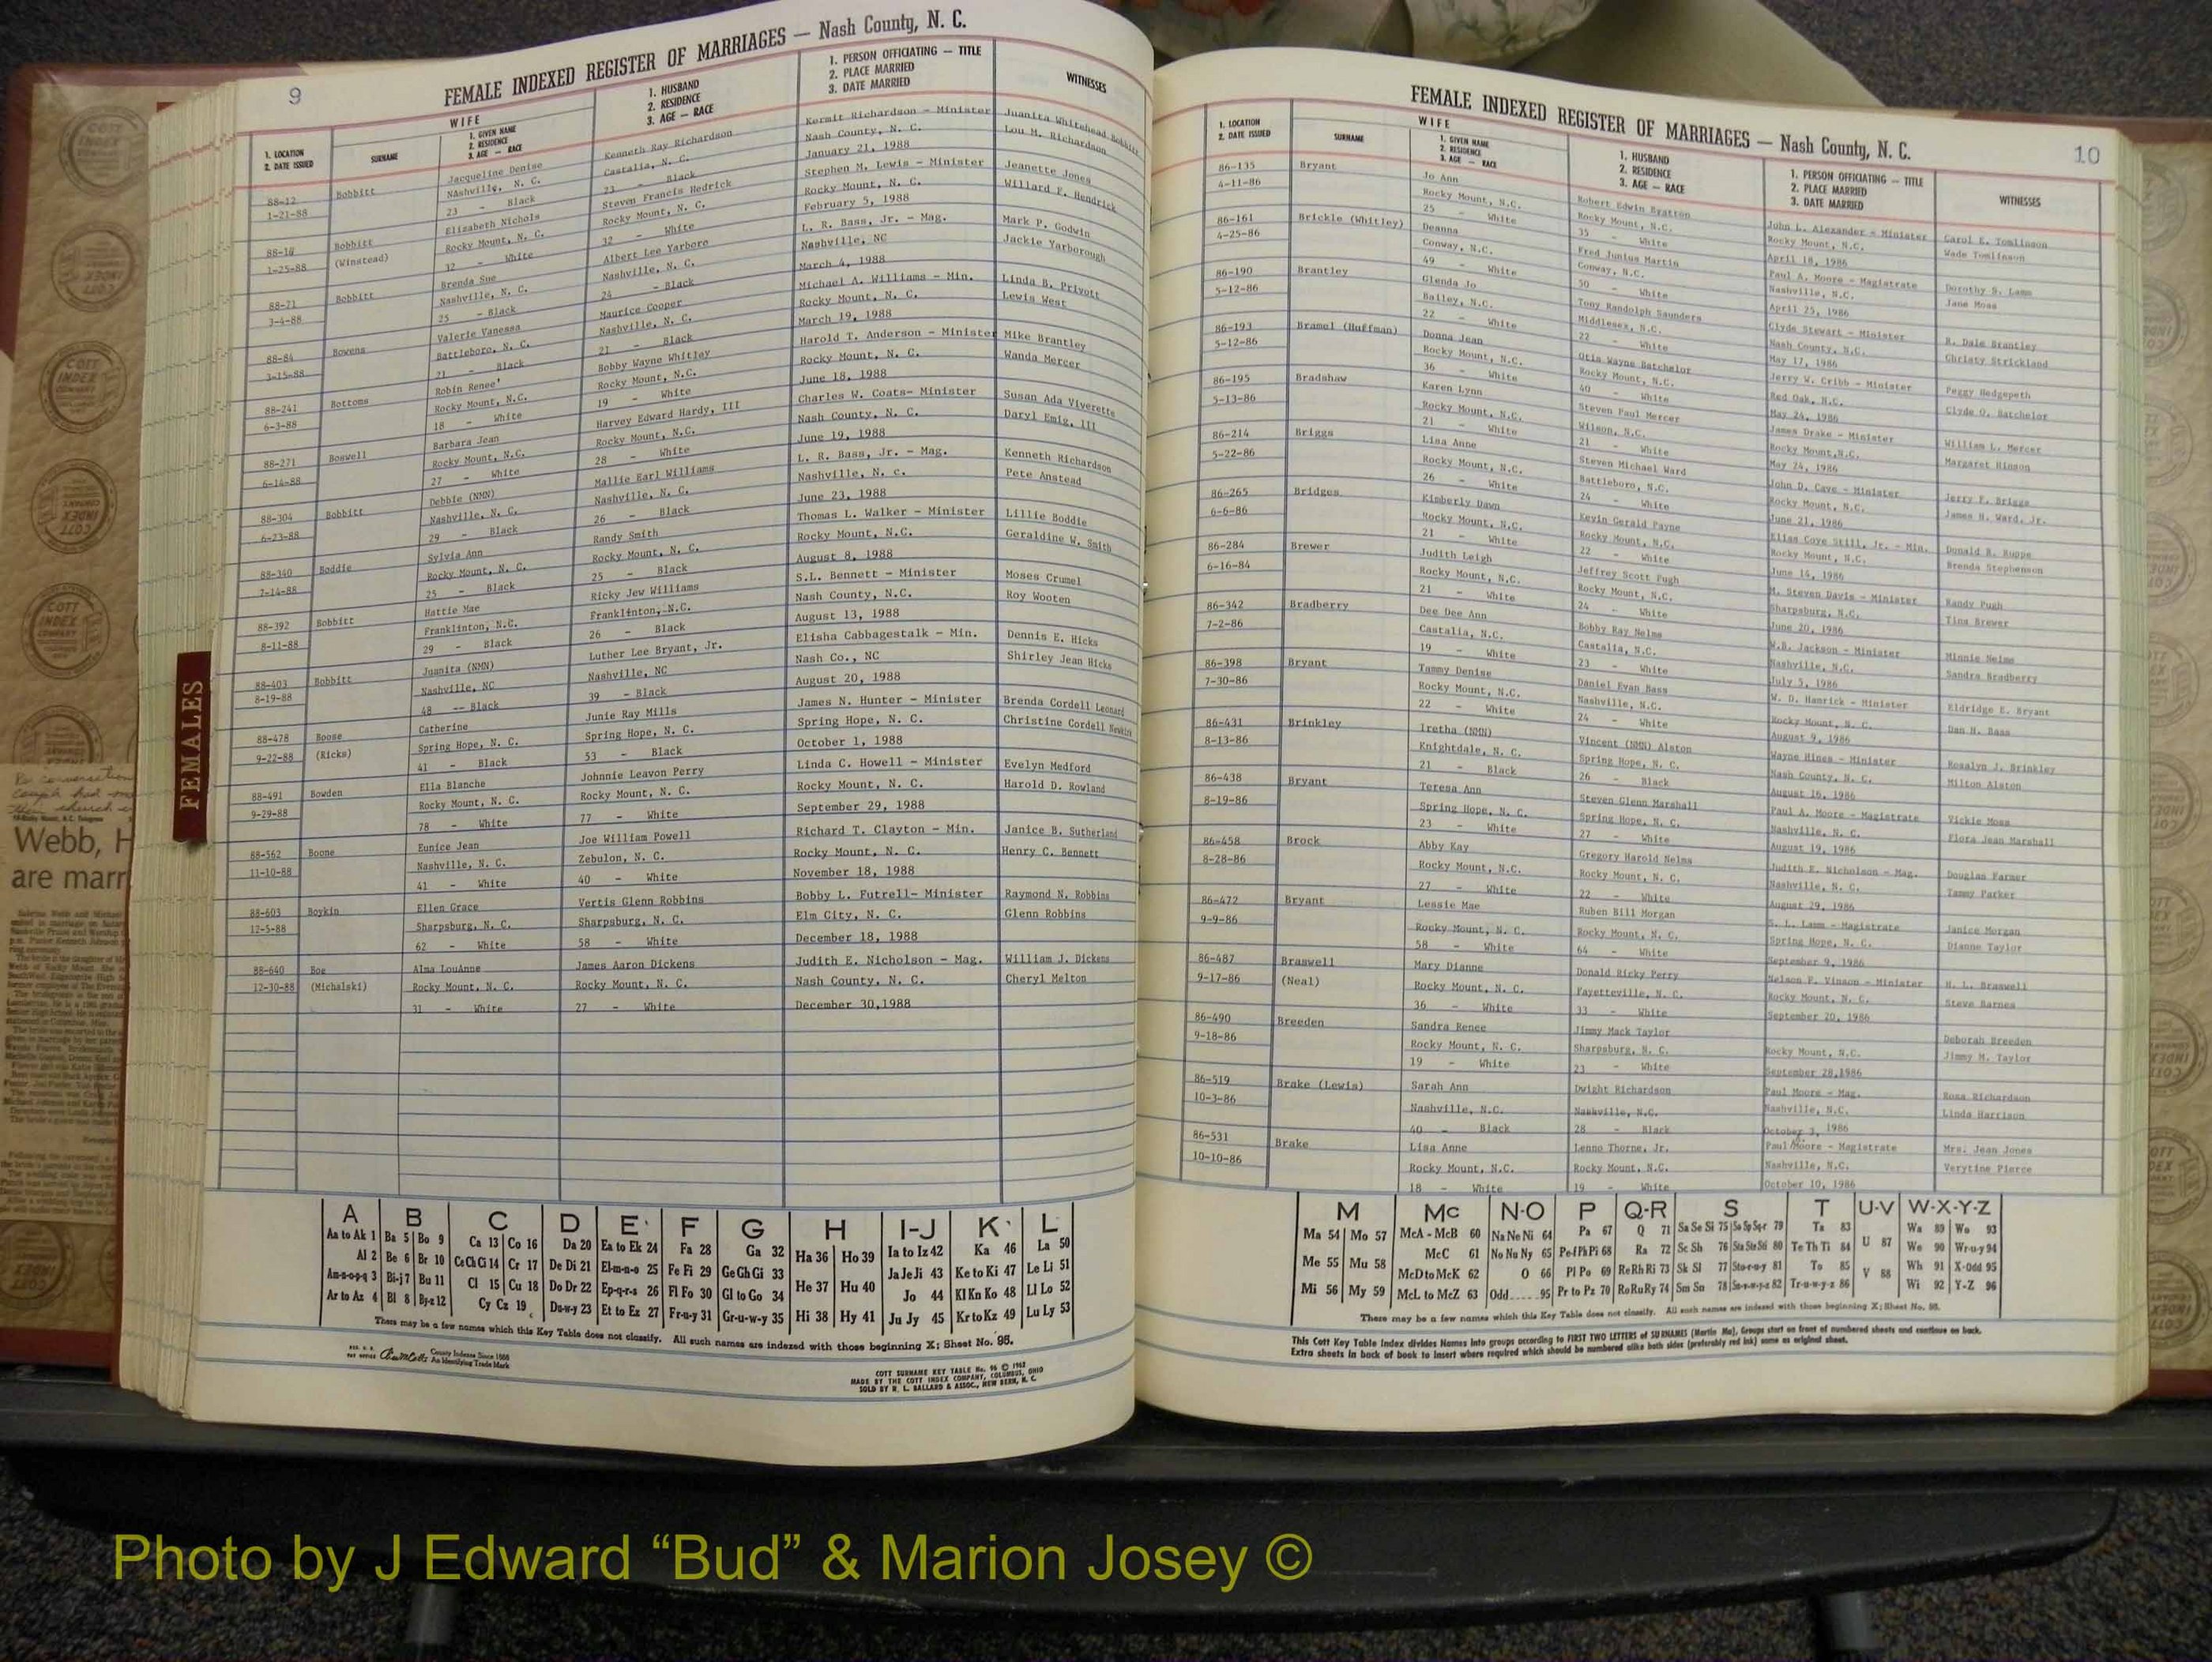 9
FEMALE INDEXED REGISTER OF MARRIAGES — Nash County, N. C.
1. LOCATION
2. DATE ISSUED
WIFE
SURNAME
1. GIVEN NAME
2. RESIDENCE
3. AGE — RACE
1. HUSBAND
2. RESIDENCE
3. AGE — RACE
1. PERSON OFFICIATING — TITLE
2. PLACE MARRIED
3. DATE MARRIED
WITNESSES
88-12 Bobbitt Jacqueline Denise Kenneth Ray Richardson Kermit Richardson - Minister Juanita Whitehead Bobbitt
1-21-88 NAshville, N. C. Castalia, N. C. Nash County, N. C. Lou M. Richardson
23 - Black 23 - Black January 21, 1988
88-16 Bobbitt Elizabeth Nichols Steven Francis Hedrick Stephen M. Lewis - Minister Jeanette Jones
1-25-88 (Winstead) Rocky Mount, N. C. Rocky Mount, N. C. Rocky Mount, N. C. Willard F. Hendrick
32 - White 32 - White February 5, 1988
88-71 Bobbitt Brenda Sue Albert Lee Yarboro L. R. Bass, Jr. - Mag. Mark P. Godwin
3-4-88 Nashville, N. C. Nashville, N. C. Nashville, NC Jackie Yarborough
25 - Black 24 - Black March 4, 1988
88-84 Bowens Valerie Vanessa Maurice Cooper Michael A. Williams - Min. Linda B. Privott
3-15-88 Battleboro, N. C. Nashville, N. C. Rocky Mount, N. C. Lewis West
21 - Black 21 - Black March 19, 1988
88-241 Bottoms Robin Renee' Bobby Wayne Whitley Harold T. Anderson - Minister Mike Brantley
6-3-88 Rocky Mount, N.C. Rocky Mount, N.C. Rocky Mount, N. C. Wanda Mercer
18 - White 19 - White June 18, 1988
88-271 Boswell Barbara Jean Harvey Edward Hardy, III Charles W. Coats- Minister Susan Ada Viverette
6-14-88 Rocky Mount, N.C. Rocky Mount, N.C. Nash County, N. C. Daryl Emig, III
27 - White 28 - White June 19, 1988
88-304 Bobbitt Debbie (NMN) Mallie Earl Williams L. R. Bass, Jr. - Mag. Kenneth Richardson
6-23-88 Nashville, N. C. Nashville, N. C. Nashville, N. c. Pete Anstead
29 - Black 26 - Black June 23, 1988
88-340 Boddie Sylvia Ann Randy Smith Thomas L. Walker - Minister Lillie Boddie
7-14-88 Rocky Mount, N. C. Rocky Mount, N. C. Rocky Mount, N.C. Geraldine W. Smith
25 - Black 25 - Black August 8, 1988
88-392 Bobbitt Hattie Mae Ricky Jew Williams S.L. Bennett - Minister Moses Crumel
8-11-88 Franklinton, N.C. Franklinton, N.C. Nash County, N.C. Roy Wooten
29 - Black 26 - Black August 13, 1988
88-403 Bobbitt Juanita (NMN) Luther Lee Bryant, Jr. Elisha Cabbagestalk - Min. Dennis E. Hicks
8-19-88 Nashville, NC Nashville, NC Nash Co., NC Shirley Jean Hicks
48 -- Black 39 - Black August 20, 1988
88-478 Boose Catherine Junie Ray Mills James N. Hunter - Minister Brenda Cordell Leonard
9-22-88 (Ricks) Spring Hope, N. C. Spring Hope, N. C. Spring Hope, N. C. Christine Cordell
41 - Black 53 - Black October 1, 1988
88-491 Bowden Ella Blanche Johnnie Leavon Perry Linda C. Howell - Minister Evelyn Medford
9-29-88 Rocky Mount, N. C. Rocky Mount, N. C. Rocky Mount, N. C. Harold D. Rowland
78 - White 77 - White September 29, 1988
88-562 Boone Eunice Jean Joe William Powell Richard T. Clayton - Min. Janice B. Sutherland
11-10-88 Nashville, N. C. Zebulon, N. C. Rocky Mount, N. C. Henry C. Bennett
41 - White 40 - White November 18, 1988
88-603 Boykin Ellen Grace Vertis Glenn Robbins Bobby L. Futrell- Minister Raymond N. Robbins
12-5-88 Sharpsburg, N. C. Sharpsburg, N. C. Elm City, N. C. Glenn Robbins
62 - White 58 - White December 18, 1988
88-640 Boe Alma LouAnne James Aaron Dickens Judith E. Nicholson - Mag. William J. Dickens
12-30-88 (Michalski) Rocky Mount, N. C. Rocky Mount, N. C. Nash County, N. C. Cheryl Melton
31 - White 27 - White December 30,1988
A B C D E F G H I-J K L
Aa to Ak 1 Ba 5 Bo 9 Ca 13 Co 16 Da 20 Ea to Ek 24 Fa 28 Ga 32 Ha 36 Ho 39 Ia to Iz 42 Ka 46 La 50
Al 2 Be 6 Br 10 Ce Ch Ci 14 Cr 17 De Di 21 El-m-n-o 25 Fe Fi 29 Ge Gh Gi 33 He 37 Hu 40 Ja Je Ji 43 Ke to Ki 47 Le Li 51
Am-n-o-p-q 3 Bi-j 7 Bu 11 Cl 15 Cu 18 Do Dr 22 Ep-q-r-s 26 Fl Fo 30 Gl to Go 34 Hi 38 Hy 41 Jo 44 Kl Kn Ko 48 Ll Lo 52
Ar to Az 4 Bl 8 By-z 12 Cy Cz 19 Du-w-y 23 Et to Ez 27 Fr-u-y 31 Gr-u-w-y 35 Ju Jy 45 Kr to Kz 49 Lu Ly 53
There may be a few names which this Key Table does not classify. All such names are indexed with those beginning X; Sheet No. 95.
County Indexes Since 1888
An Identifying Trade Mark
COTT SURNAME KEY TABLE No. 96 © 1962
MADE BY THE COTT INDEX COMPANY, COLUMBUS, OHIO
SOLD BY R. L. BALLARD & ASSOC., NEW BERN, N. C.
FEMALES
Webb, H
are marr
FEMALE INDEXED REGISTER OF MARRIAGES — Nash County, N. C.
10
1. LOCATION
2. DATE ISSUED
WIFE
SURNAME
1. GIVEN NAME
2. RESIDENCE
3. AGE — RACE
1. HUSBAND
2. RESIDENCE
3. AGE — RACE
1. PERSON OFFICIATING — TITLE
2. PLACE MARRIED
3. DATE MARRIED
WITNESSES
86-135 Bryant Jo Ann Robert Edwin Bratton John L. Alexander - Minister Carol E. Tomlinson
4-11-86 Rocky Mount, N.C. Rocky Mount, N.C. Rocky Mount, N.C. Wade Tomlinson
25 - White 35 - White April 18, 1986
86-161 Brickle (Whitley) Deanna Fred Junius Martin Paul A. Moore - Magistrate Dorothy S. Lamm
4-25-86 Conway, N.C. Conway, N.C. Nashville, N.C. Jane Moss
49 - White 50 - White April 25, 1986
86-190 Brantley Glenda Jo Tony Randolph Saunders Clyde Stewart - Minister R. Dale Brantley
5-12-86 Bailey, N.C. Middlesex, N.C. Nash County, N.C. Christy Strickland
22 - White 22 - White May 17, 1986
86-193 Bramel (Huffman) Donna Jean Otis Wayne Batchelor Jerry W. Cribb - Minister Peggy Hedgepeth
5-12-86 Rocky Mount, N.C. Rocky Mount, N.C. Red Oak, N.C. Clyde O. Batchelor
36 - White 40 - White May 24, 1986
86-195 Bradshaw Karen Lynn Steven Paul Mercer James Drake - Minister William L. Mercer
5-13-86 Rocky Mount, N.C. Wilson, N.C. Rocky Mount,N.C. Margaret Hinson
21 - White 21 - White May 24, 1986
86-214 Briggs Lisa Anne Steven Michael Ward John D. Cave - Minister Jerry F. Briggs
5-22-86 Rocky Mount, N.C. Battleboro, N.C. Rocky Mount, N.C. James H. Ward, Jr.
26 - White 24 - White June 21, 1986
86-265 Bridges Kimberly Dawn Kevin Gerald Payne Elias Coye Still, Jr. - Min. Donald R. Ruppe
6-6-86 Rocky Mount, N.C. Rocky Mount, N.C. Rocky Mount, N.C. Brenda Stephenson
21 - White 22 - White June 14, 1986
86-284 Brewer Judith Leigh Jeffrey Scott Pugh M. Steven Davis - Minister Randy Pugh
6-16-84 Rocky Mount, N.C. Rocky Mount, N.C. Sharpsburg, N.C. Tina Brewer
21 - White 24 - White June 20, 1986
86-342 Bradberry Dee Dee Ann Bobby Ray Nelms W.B. Jackson - Minister Minnie Nelms
7-2-86 Castalia, N.C. Castalia, N.C. Nashville, N.C. Sandra Bradberry
19 - White 23 - White July 5, 1986
86-398 Bryant Tammy Denise Daniel Evan Bass W. D. Hamrick - Minister Eldridge E. Bryant
7-30-86 Rocky Mount, N.C. Nashville, N.C. Rocky Mount, N. C. Dan H. Bass
22 - White 24 - White August 9, 1986
86-431 Brinkley Iretha (NMN) Vincent (NMN) Alston Wayne Hines - Minister Rosalyn J. Brinkley
8-13-86 Knightdale, N. C. Spring Hope, N. C. Nash County, N. C. Milton Alston
21 - Black 26 - Black August 16, 1986
86-438 Bryant Teresa Ann Steven Glenn Marshall Paul A. Moore - Magistrate Vickie Moss
8-19-86 Spring Hope, N. C. Spring Hope, N. C. Nashville, N. C. Flora Jean Marshall
23 - White 27 - White August 19, 1986
86-458 Brock Abby Kay Gregory Harold Nelms Judith E. Nicholson - Mag. Douglas Farmer
8-28-86 Rocky Mount, N.C. Rocky Mount, N. C. Nashville, N. C. Tammy Parker
27 - White 22 - White August 29, 1986
86-472 Bryant Lessie Mae Ruben Bill Morgan S. L. Lamm - Magistrate Janice Morgan
9-9-86 Rocky Mount, N. C. Rocky Mount, N. C. Spring Hope, N. C. Dianne Taylor
58 - White 64 - White September 9, 1986
86-487 Braswell Mary Dianne Donald Ricky Perry Nelson F. Vinson - Minister H. L. Braswell
9-17-86 (Neal) Rocky Mount, N. C. Fayetteville, N. C. Rocky Mount, N. C. Steve Barnes
36 - White 33 - White September 20, 1986
86-490 Breeden Sandra Renee Jimmy Mack Taylor Deborah Breeden
9-18-86 Rocky Mount, N. C. Sharpsburg, N. C. Rocky Mount, N.C. Jimmy M. Taylor
19 - White 23 - White September 28,1986
86-519 Brake (Lewis) Sarah Ann Dwight Richardson Paul Moore - Mag. Rosa Richardson
10-3-86 Nashville, N.C. Nashville, N.C. Nashville, N.C. Linda Harrison
40 - Black 28 - Black October 3, 1986
86-531 Brake Lisa Anne Lenno Thorne, Jr. Paul Moore - Magistrate Mrs. Jean Jones
10-10-86 Rocky Mount, N.C. Rocky Mount, N.C. Nashville, N.C. Verytine Pierce
18 - White 19 - White October 10, 1986
M Mc N-O P Q-R S T U-V W-X-Y-Z
Ma 54 Mo 57 McA - McB 60 Na Ne Ni 64 Pa 67 Q 71 Sa Se Si 75 So Sp Sq-r 79 Ta 83 U 87 Wa 89 Wo 93
Me 55 Mu 58 McC 61 No Nu Ny 65 Pe-f Ph Pi 68 Ra 72 Sc Sh 76 Sta Ste Sti 80 Te Th Ti 84 V 88 We 90 Wr-u-y 94
McD to McK 62 O 66 Pl Po 69 Re Rh Ri 73 Sk Sl 77 Sto-r-u-y 81 To 85 Wh 91 X-Odd 95
Mi 56 My 59 McL to McZ 63 Odd......95 Pr to Pz 70 Ro Ru Ry 74 Sm Sn 78 Su-v-w-y-z 82 Tr-u-w-y-z 86 Wi 92 Y-Z 96
There may be a few names which this Key Table does not classify. All such names are indexed with those beginning X; Sheet No. 95.
This Cott Key Table Index divides Names into groups according to FIRST TWO LETTERS of SURNAMES (Martin Ma), Groups start on front of numbered sheets and continue on back.
Extra sheets in back of book to insert where required which should be numbered alike both sides (preferably red ink) same as original sheet.
Photo by J Edward “Bud” & Marion Josey ©